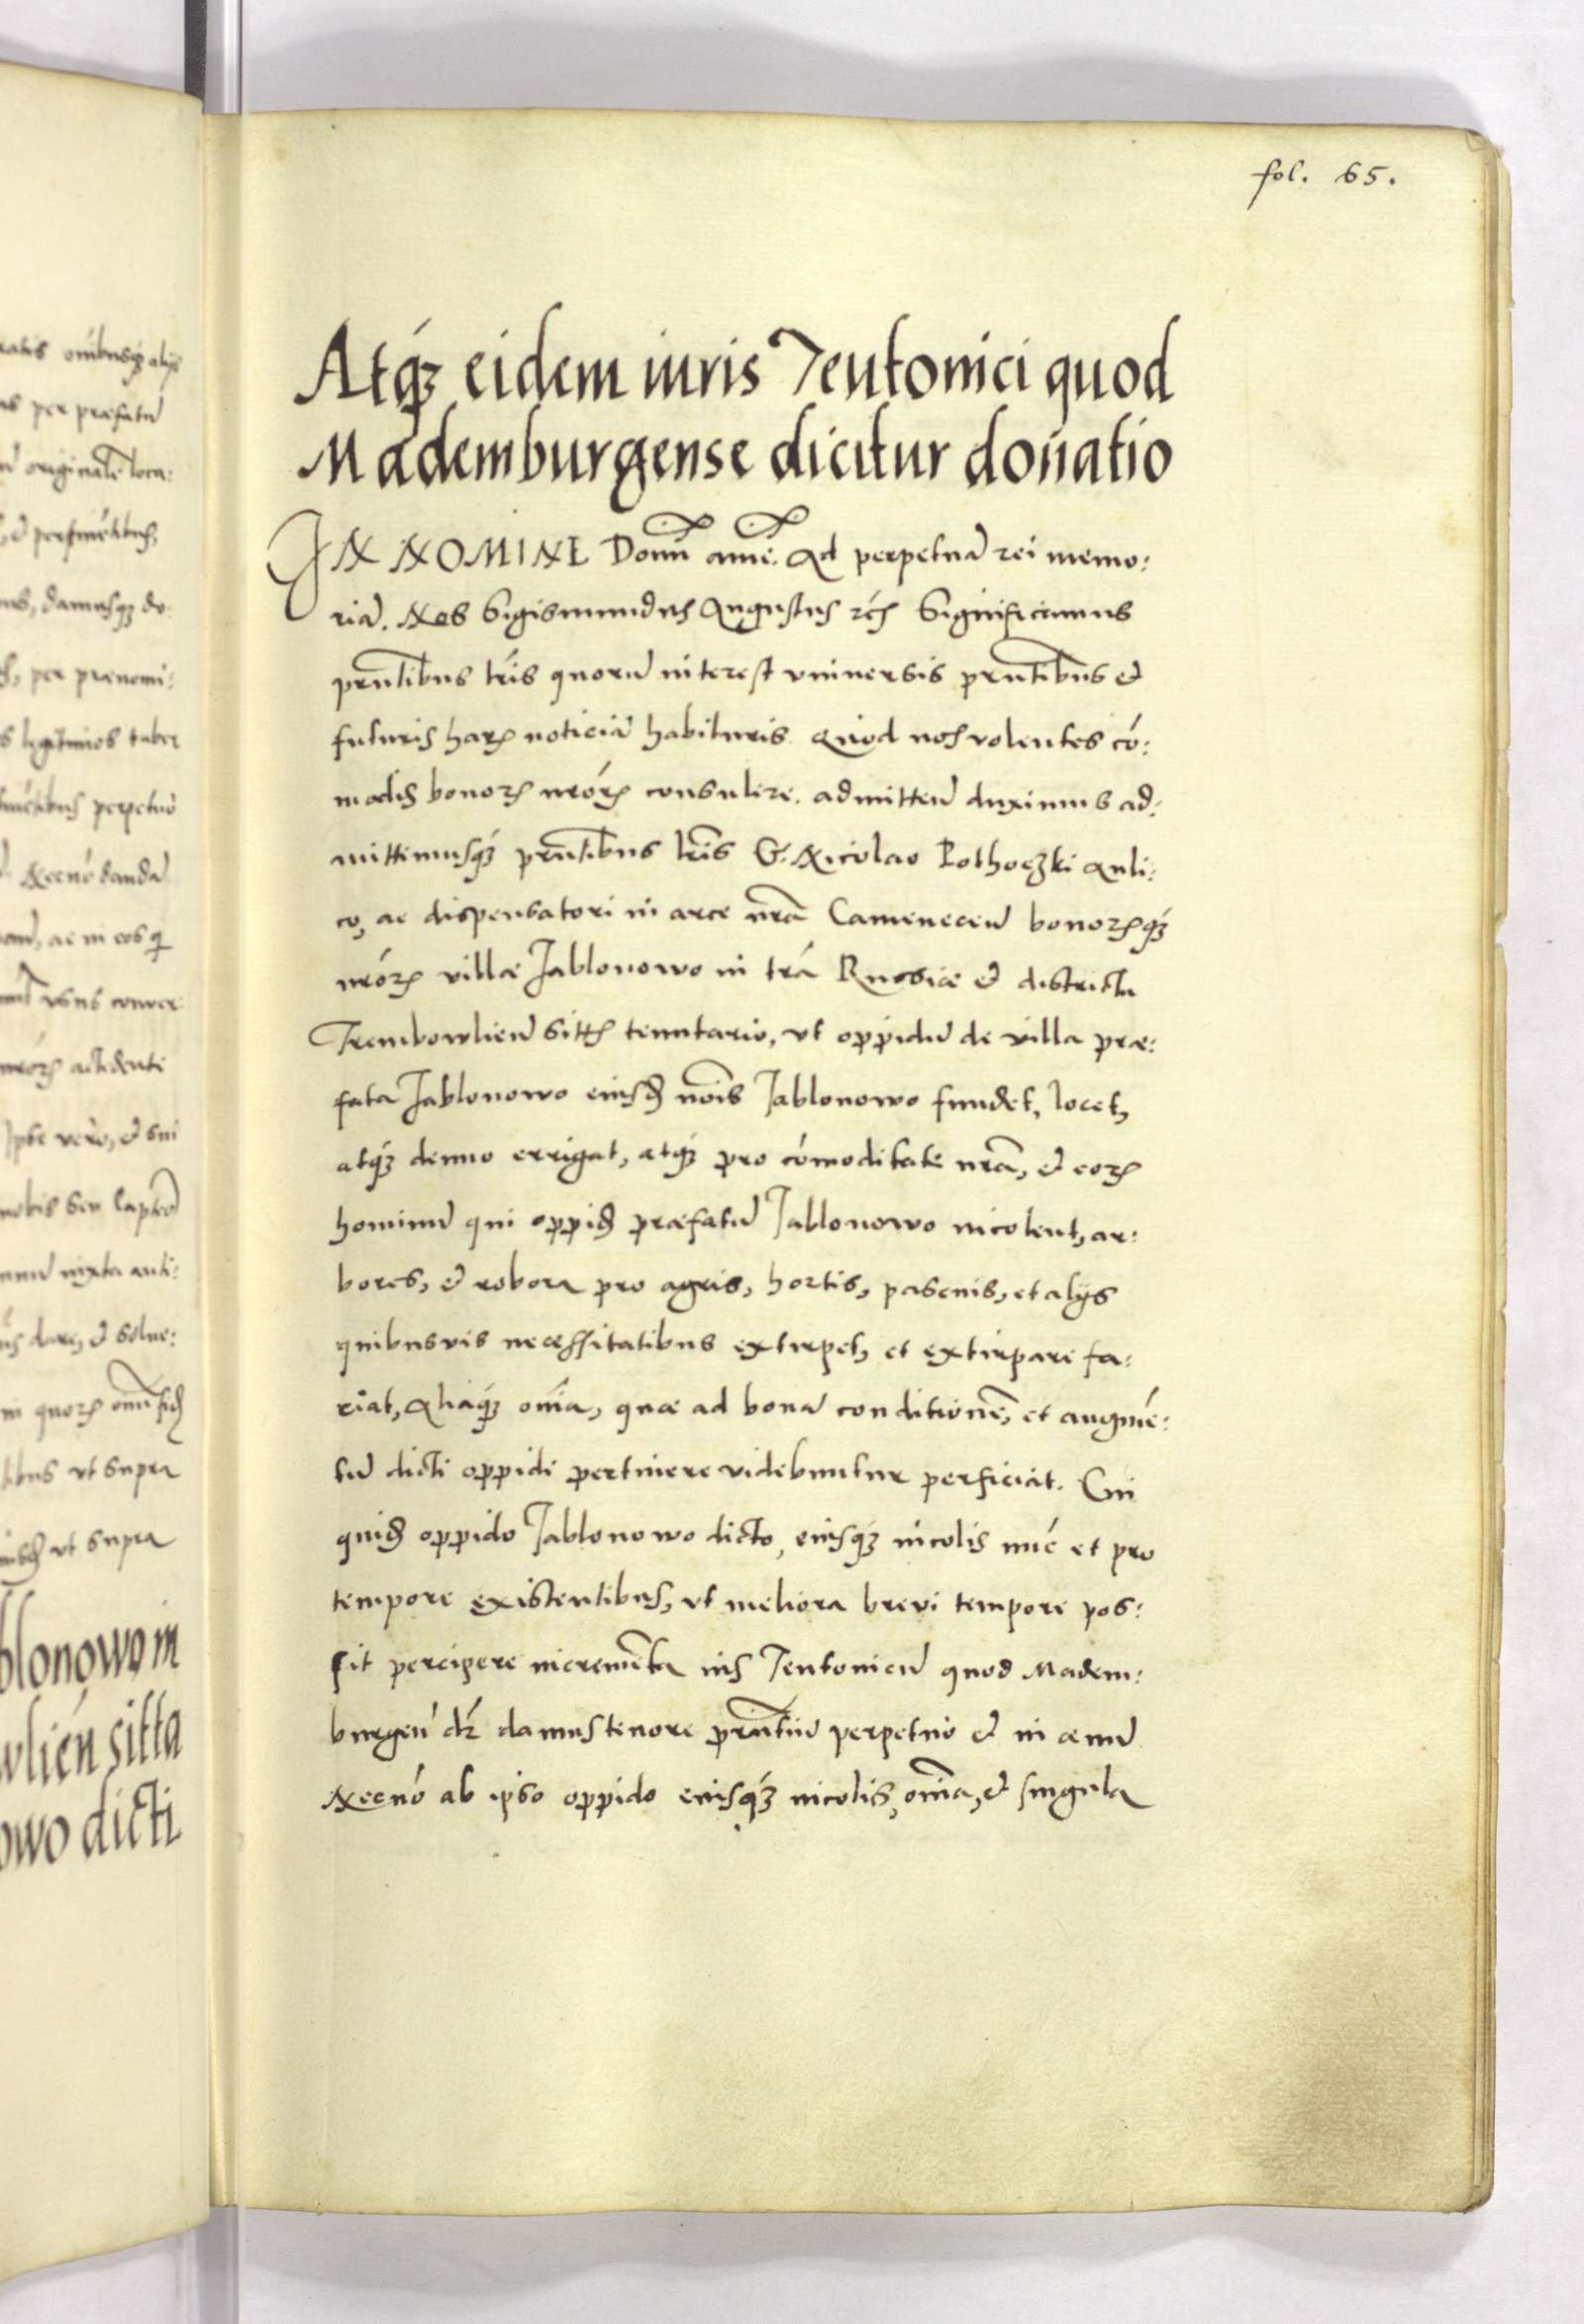 fol. 65.
Atq́ꝫ eidem iuris Teutonici quod
Mademburgense dicitur donatio
IN NOMINE Domī amē. Ad perpetuā rei memo:
riā. Nos Sigismundus Augustus réꝫ Significamus
prn̄tibus lr̄is quorū interest vniuersis prn̄tibus et
futuris harꝝ noticiā habituris quod nos volentes có:
modis bonorꝝ nrórꝝ consulere. admitteñ duximus ad:
mittimusq́ꝫ prn̄tibus lr̄is G. Nicolao Pothoczki Auli:
co, ac dispensatori in arce nrā Camenecen̄ bonorꝝq́ꝫ
nrórꝝ villæ Jablonowo in trā Russiæ et districtu
Trembowlien̄ sittꝝ tenutario, vt oppidū de villa præ:
fata Jablonowo eiusꝺ noīs Jablonowo fundet, locet,
atq́ꝫ denuo errigat, atq́ꝫ pro cómoditate nrā, et eorꝝ
hominū qui oppiꝺ præfatū Jablonowo incolent, ar:
bores, et robora pro agris, hortis, pascuis, et alijs
quibusuis necessitatibus extirpet, et extirpare fa:
ciat, Aliaq́ꝫ oīa, quæ ad bonā conditionē, et augmē:
tū dicti oppidi pertinere videbuntur perficiat. Cui
quiꝺ oppido Jablonowo dicto, eiusq́ꝫ incolis nūc et pro
tempore existentibus, vt meliora brevi tempore pos:
sit percipere incremēta ius Teutonicū quod Madem:
burgen̄ dr̄ damus tenore prn̄tiū perpetuo et in æuū
Necnó ab ipso oppido eiusq́ꝫ incolis, oīa, et singula